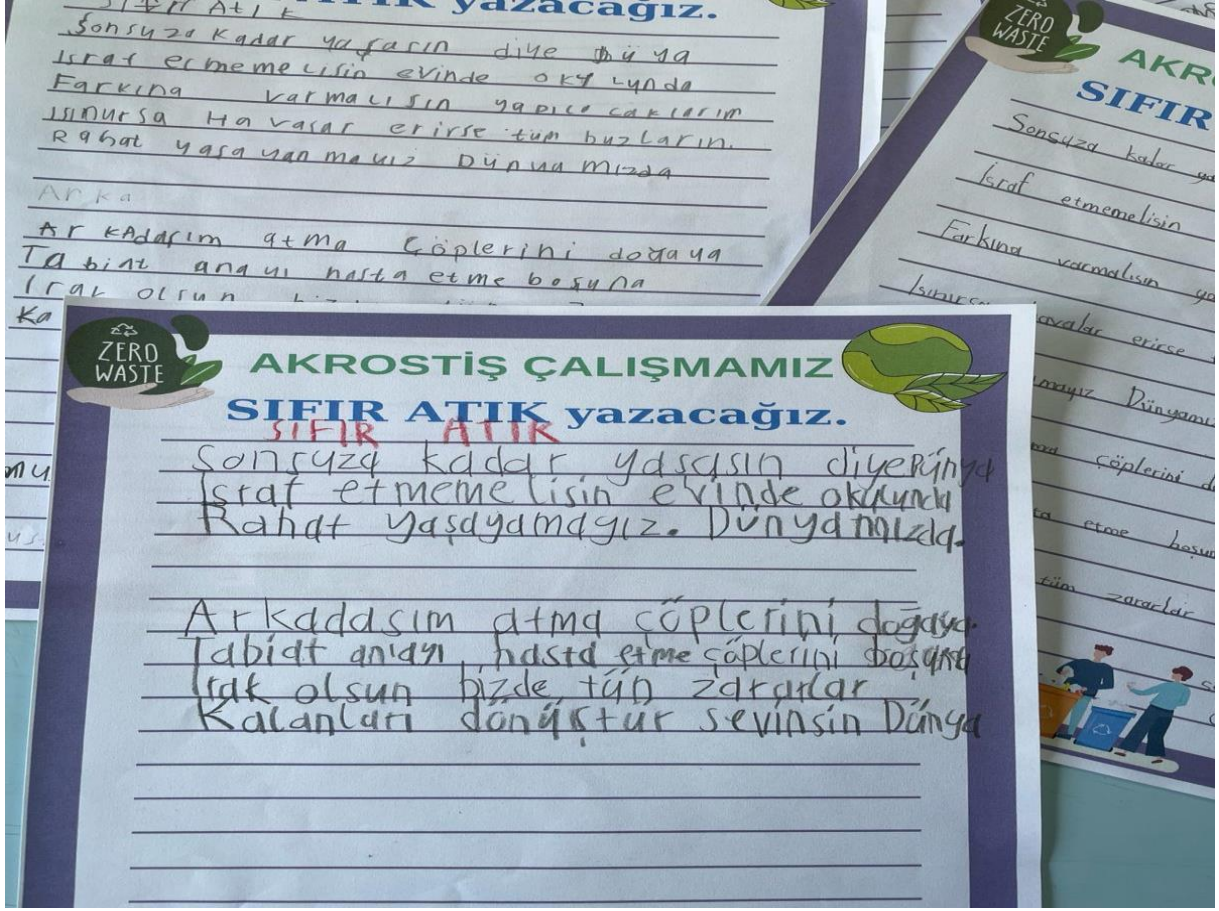 SIFIR Atık
ATIK yazacağız.
Sonsuza Kadar yaşasın diye Dünya
Israf etmemelisin evinde okulunda
Farkına varmalısın yapılacakların
Isınursa Havalar erirse tüm buzların.
Rahat yaşayanmayız Dünyamızda
Arka
ArkAdaşım atma Çöplerini doğaya
Tabiat anayı hasta etme boşuna
Irak olsun
Ka
ZERO
WASTE
AKRO
SIFIR
Sonsuza kadar ya
İsraf etmemelisin
Farkına varmalısın ya
Isınırsa havalar erirse
mayız Dünyamız
çöplerini d
etme boşun
tüm zararlar
ZERO
WASTE
AKROSTİŞ ÇALIŞMAMIZ
SIFIR ATIK yazacağız.
SIFIR ATIK
Sonsuza kadar yaşasın diye Dünya
İsraf etmemelisin evinde okulunda
Rahat yaşayamayız. Dünyamızda.
Arkadaşım atma çöplerini doğaya.
Tabiat anayı hasta etme çöplerini boşuna
Irak olsun bizde tün zararlar
Kalanları dönüştür sevinsin Dünya